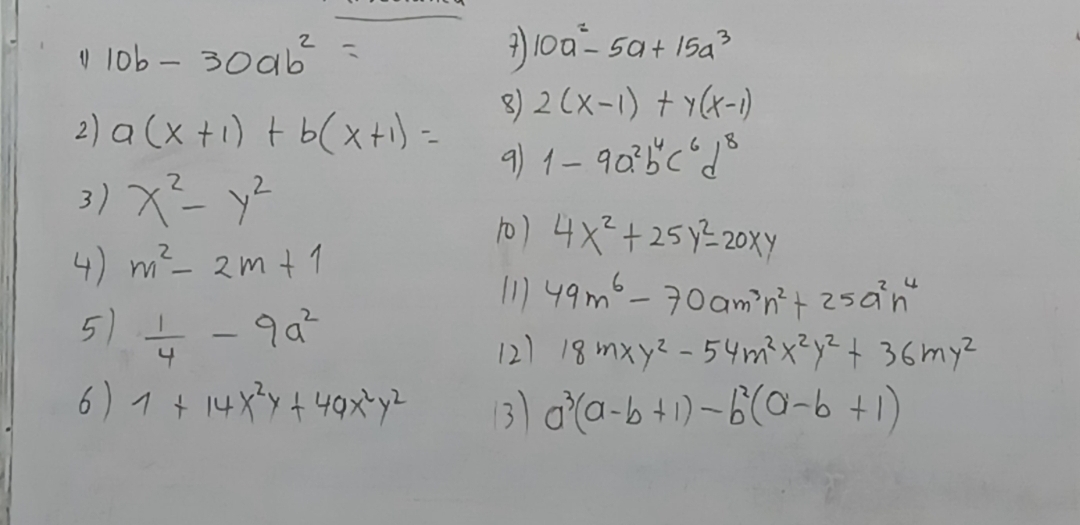 1) 10b - 30ab² =
2) a(x+1) + b(x+1) =
3) x² - y²
4) m² - 2m + 1
5) 1/4 - 9a²
6) 1 + 14x²y + 49x²y²
7) 10a² - 5a + 15a³
8) 2(x-1) + y(x-1)
9) 1 - 9a²b⁴c⁶d⁸
10) 4x² + 25y² - 20xy
11) 49m⁶ - 70am³n² + 25a²n⁴
12) 18mxy² - 54m²x²y² + 36my²
13) a³(a-b+1) - b²(a-b+1)